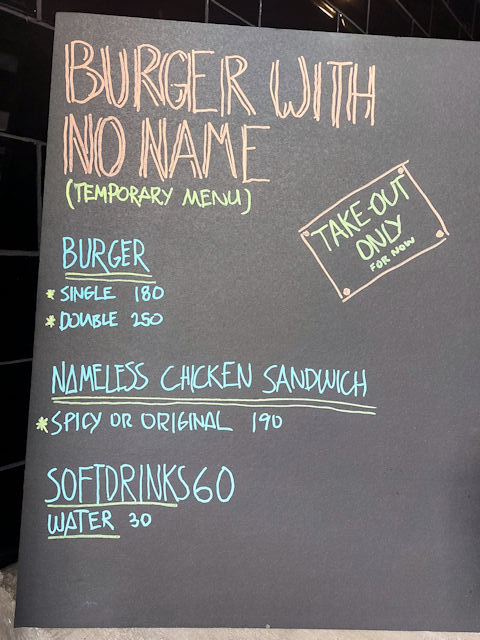 BURGER WITH
NO NAME
(TEMPORARY MENU)
TAKE-OUT
ONLY
FOR NOW
BURGER
* SINGLE 180
* DOUBLE 250
NAMELESS CHICKEN SANDWICH
* SPICY OR ORIGINAL 190
SOFTDRINKS 60
WATER 30